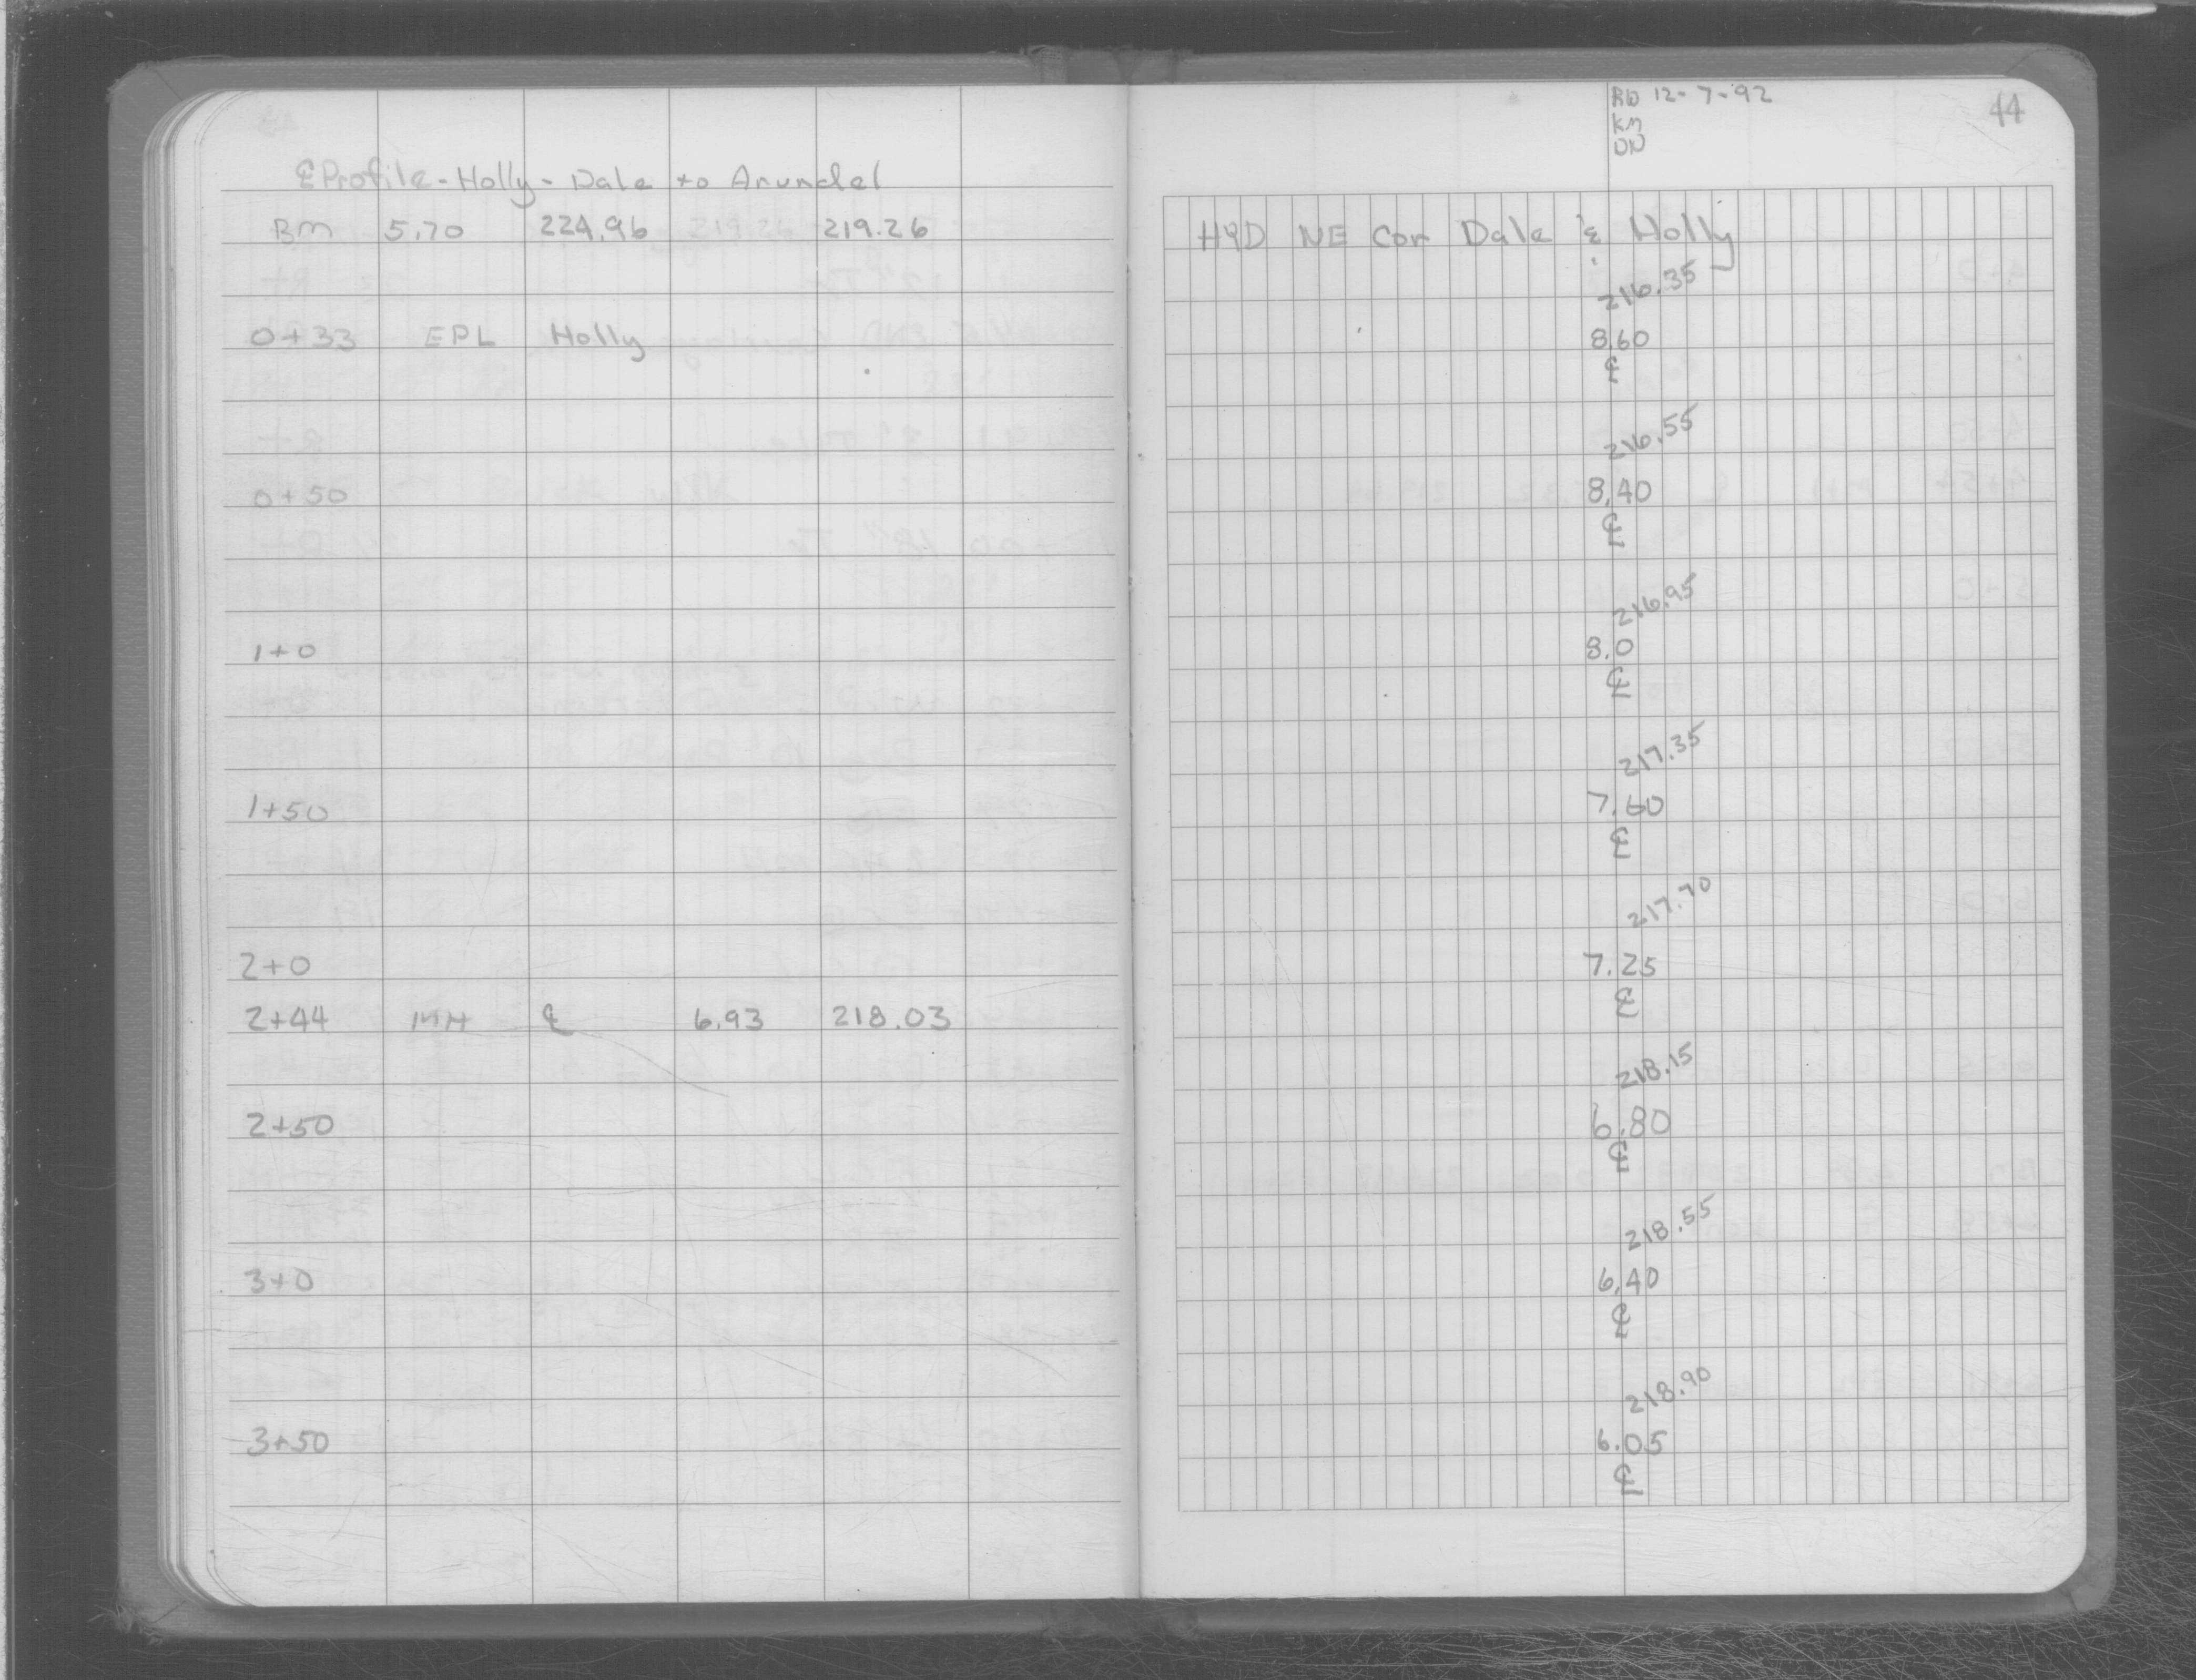 ℄ Profile - Holly - Dale to Arundel
BM 5.70 224.96 219.26
0+33 EPL Holly
0+50
1+0
1+50
2+0
2+44 MH ℄ 6.93 218.03
2+50
3+0
3+50
RB 12-7-92
KM
DN
44
HYD NE Cor Dale & Holly
216.35
8.60
℄
216.55
8.40
℄
216.95
8.0
℄
217.35
7.60
℄
217.70
7.25
℄
218.15
6.80
℄
218.55
6.40
℄
218.90
6.05
℄